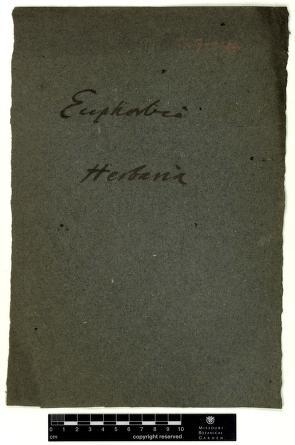 Euphorbia
Herbaria
0 1 2 3 4 5 6 7 8 9 10
cm copyright reserved
MISSOURI
BOTANICAL
GARDEN